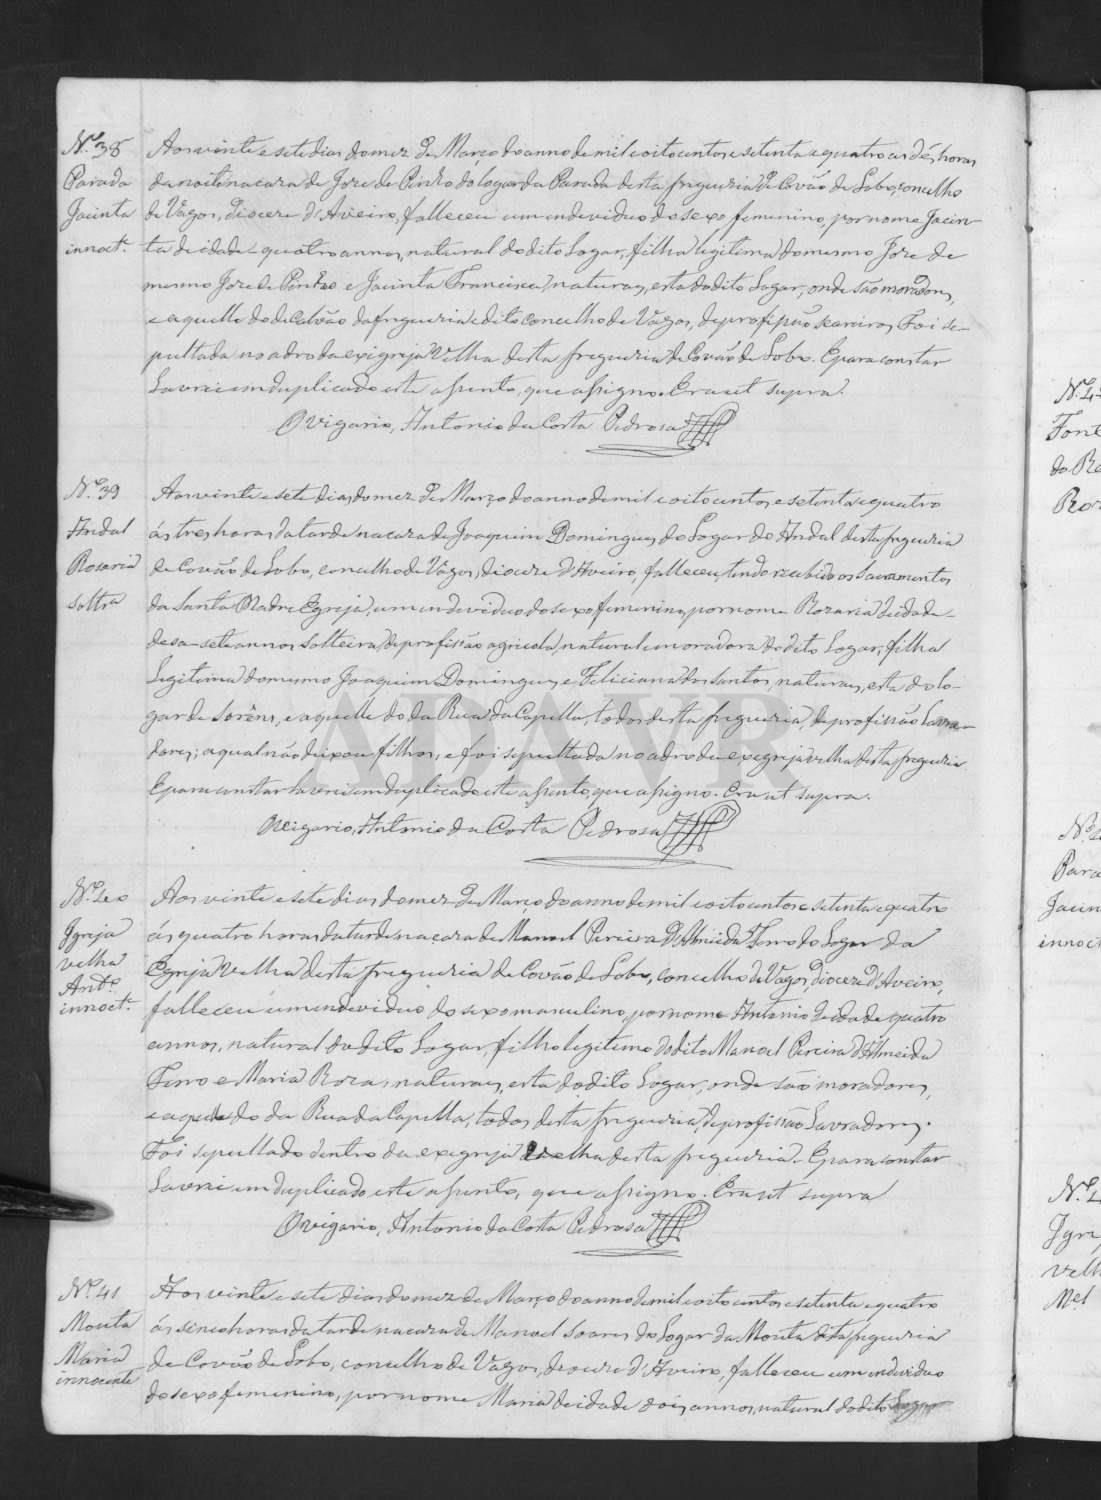 Nº 38
Parada
Jacinta
innoctᵉ
Aos vinte e sete dias do mez de Março do anno de mil e oito centos e setenta e quatro as dés horas
da noite na caza de Joze de Pinho do logar da Parada desta freguezia de Covão de Lobo, concelho
de Vagos, diocese d'Aveiro, falleceu um endeviduo do sexo femenino, por nome Jacin-
ta de idade quatro annos, natural do dito Logar, filha legitima do mesmo Joze de
mesmo Joze de Pinho e Jacinta Francisca, naturaes, esta do dito Logar, onde são moradores,
e aquelle do de Calvão da freguezia e dito concelho de Vagos, de profissão seareiros. Foi se-
pultada no adro da exigreja velha desta freguezia de Covão de Lobo. E para constar
Lavrei em duplicado este assento, que assigno. Era ut supra.
O vigario, Antonio da Costa Pedrosa
Nº 39
Andal
Rosaria
soltrª
Aos vinte e sete dias do mez de Março do anno de mil e oito centos e setenta e quatro
ás tres horas da tarde na caza de Joaquim Domingues do Logar do Andal desta freguezia
de Covão de Lobo, concelho de Vagos, diocese d'Aveiro, falleceu, tendo recebido os Sacramentos
da Santa Madre Egreja, um endeviduo do sexo femenino, por nome Rozaria de idade
desasete annos, solteira, de profissão agricola, natural e moradora do dito Logar, filha
Legitima do mesmo Joaquim Domingues e Feliciana dos Santos, naturaes, esta do lo-
gar de Sorêns, e aquelle do da Rua da Capella, todos desta freguezia, de profissão Lavra-
dores; a qual não deixou filhos, e foi sepultada no adro da exegreja velha desta freguezia
E para constar lavrei em duplicado este assento, que assigno. Era ut supra.
O vigario, Antonio da Costa Pedrosa
Nº 40
Igreja
velha
Antº
innoctᵉ
Aos vinte e sete dias do mez de Março do anno de mil e oito centos e setenta e quatro
ás quatro horas da tarde na caza de Manoel Pereira d'Almeida Ferro do Logar da
Egreja Velha desta freguezia de Covão de Lobo, concelho de Vagos, diocese d'Aveiro,
falleceu um endeviduo do sexo masculino, por nome Antonio de idade quatro
annos, natural do dito Logar, filho legitimo do dito Manoel Pereira d'Almeida
Ferro e Maria Roza, naturaes, esta do dito Logar, onde são moradores,
e aquelle do da Rua da Capella, todos desta freguezia, de profissão Lavradores.
Foi sepultado dentro da exegreja velha desta freguezia. E para constar
Lavrei em duplicado este assento, que assigno. Era ut supra
O vigario, Antonio da Costa Pedrosa
Nº 41
Mouta
Maria
innocente
Aos vinte e sete dias do mez de Março do anno de mil e oito centos e setenta e quatro
ás sinco horas da tarde na caza de Manoel Soares do Logar da Mouta desta freguezia
de Covão de Lobo, concelho de Vagos, diocese d'Aveiro, falleceu um endeviduo
do sexo femenino, por nome Maria de idade dois annos, natural do dito Logar
ADAVR
Font
Para
Jacin
innoct
Igre
velh
Mᵉˡ